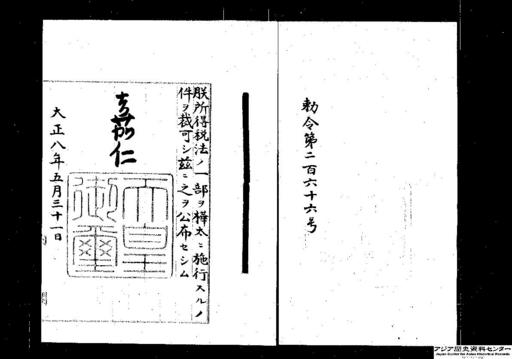 勅令第二百六十六号
朕所得税法ノ一部ヲ樺太ニ施行スルノ
件ヲ裁可シ茲ニ之ヲ公布セシム
嘉仁
天皇御璽
大正八年五月三十一日
アジア歴史資料センター
Japan Center for Asian Historical Records